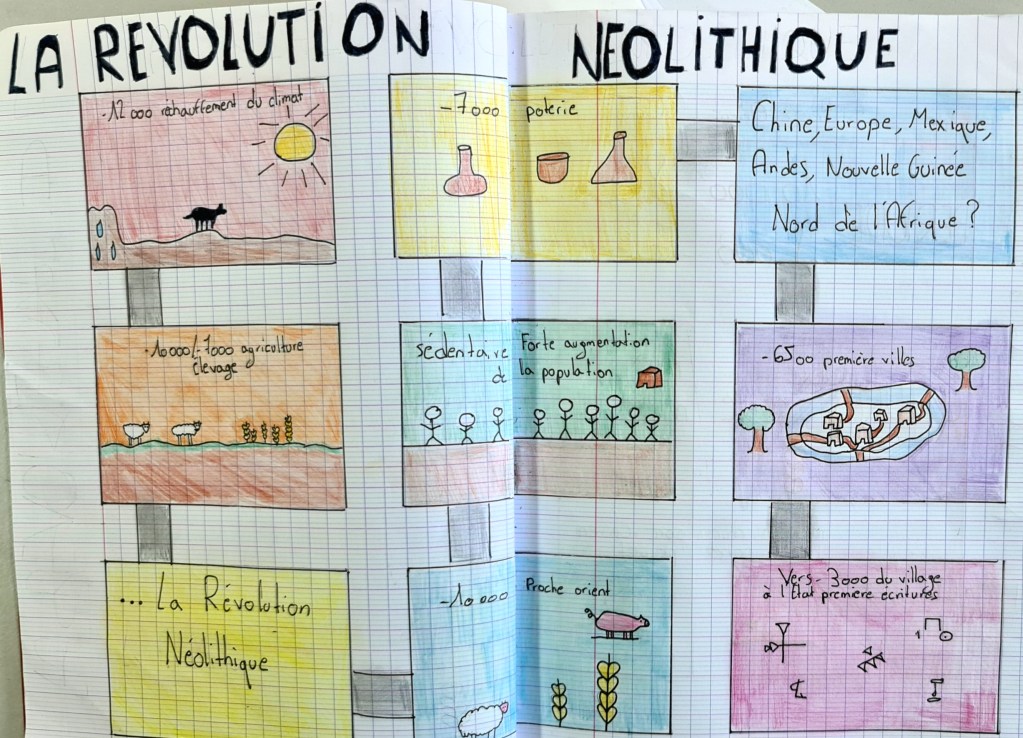 LA REVOLUTION NEOLITHIQUE
-12 000 réchauffement du climat
-10000/-7000 agriculture
élevage
... La Révolution
Néolithique
-10 000 Proche orient
sédentaire Forte augmentation
de la population
-7000 poterie
Chine, Europe, Mexique,
Andes, Nouvelle Guinée
Nord de l'Afrique ?
-6500 première villes
Vers -3000 du village
à l'État première écritures